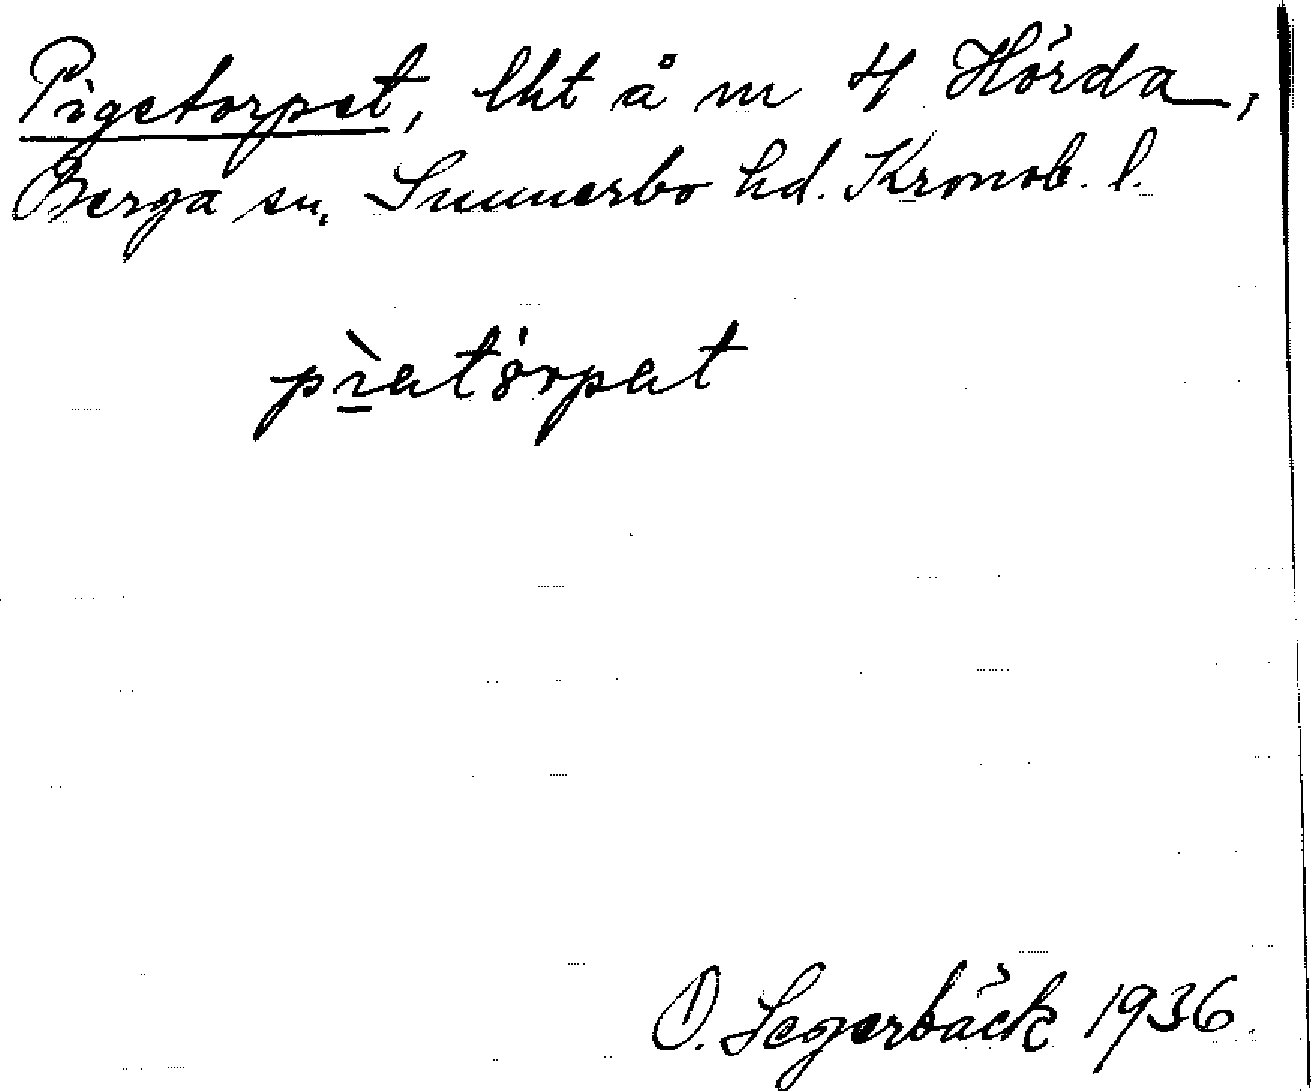 Pigetorpet, lht å m 4 Hörda,
Berga sn. Sunnerbo hd. Kronob. l.
pìatórpat
O. Segerbäck 1936.